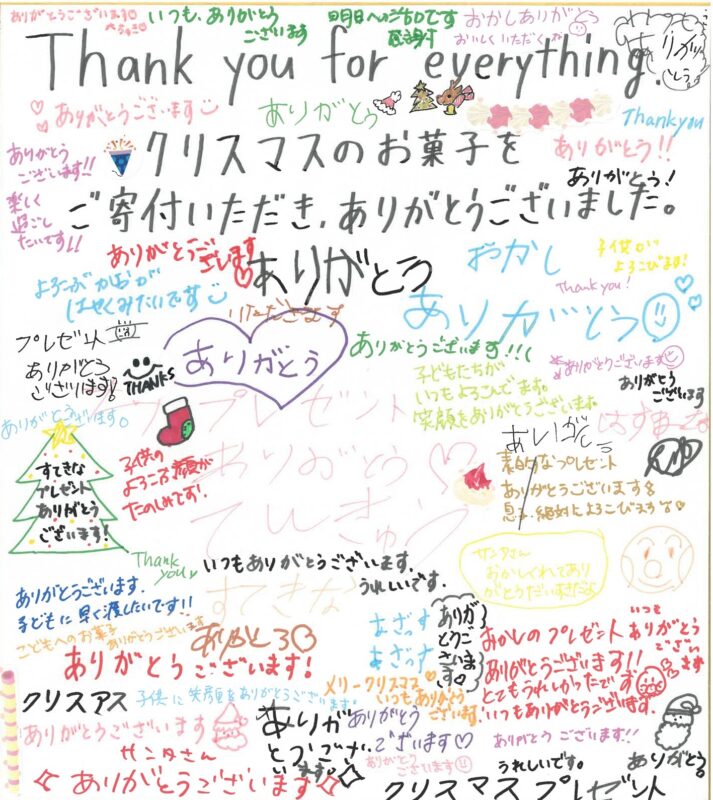 ありがとうございます
いつも、ありがとう
ございます
明日への活力です
感謝
おかしありがとう
おいしくいただくね
いつも
ありが
とう
Thank you for everything.
ありがとうございます
ありがとう
Thank you
クリスマスのお菓子を
ありがとう!!
ありがとう
ございます!!
ありがとう!
ご寄付いただき、ありがとうございました。
楽しく
過ごし
たいです!!
ありがとうご
ざいます
ありがとう
おかし
ありがとう
子供が
よろこびます!
Thank you!
よろこぶかおが
はやくみたいです
いただきます
プレゼント
ありがとう
ございます!
THANKS
ありがとう
ありがとうございます!!
ありがとうございます
子どもたちが
いつもよろこんでます。
笑顔をありがとうございます
ありがとう
ございます
ありがとうございます。
プレゼント
ありがとう
てんきゅう
すてきな
プレゼント
ありがとう
ございます!
子供の
よろこぶ顔が
たのしみです!
ありがとう
素敵なプレゼント
ありがとうございます
息子絶対によろこびそう
Thank
you
いつもありがとうございます。
うれしいです。
サンタさん
おかしくれてあり
がとうだいすきだよ
ありがとうございます。
子どもに早く渡したいです!!
すてきな
こどもへのお菓子
ありがとうございます
ありがとう
ありがとうございます!
あざっす
あざっす
ありが
とうご
ざいま
す
おかしのプレゼント
ありがとうございます!!
とてもうれしかったです
いつもありがとうございます。
いつも
ありがとう
ございます
クリスマス
子供に笑顔をありがとうございます。
メリークリスマス
いつもありがとう
ございます。
ありがとうございます
ありが
とうござい
ます。
ありがとう
ございます
ありがとう
ございます
ありがとうございます!!
うれしいです。
ありがとう
サンタさん
ありがとうございます
クリスマスプレゼント